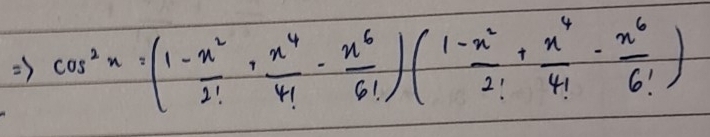 => cos² x = (1 - x²/2! + x⁴/4! - x⁶/6!) (1 - x²/2! + x⁴/4! - x⁶/6!)